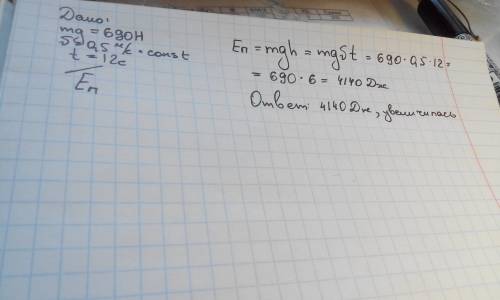 Дано:
mg = 690Н
υ = 0,5 м/с - const
t = 12с
Eп
Eп = mgh = mgυt = 690·0,5·12=
= 690·6 = 4140 Дж
Ответ: 4140 Дж, увеличилась